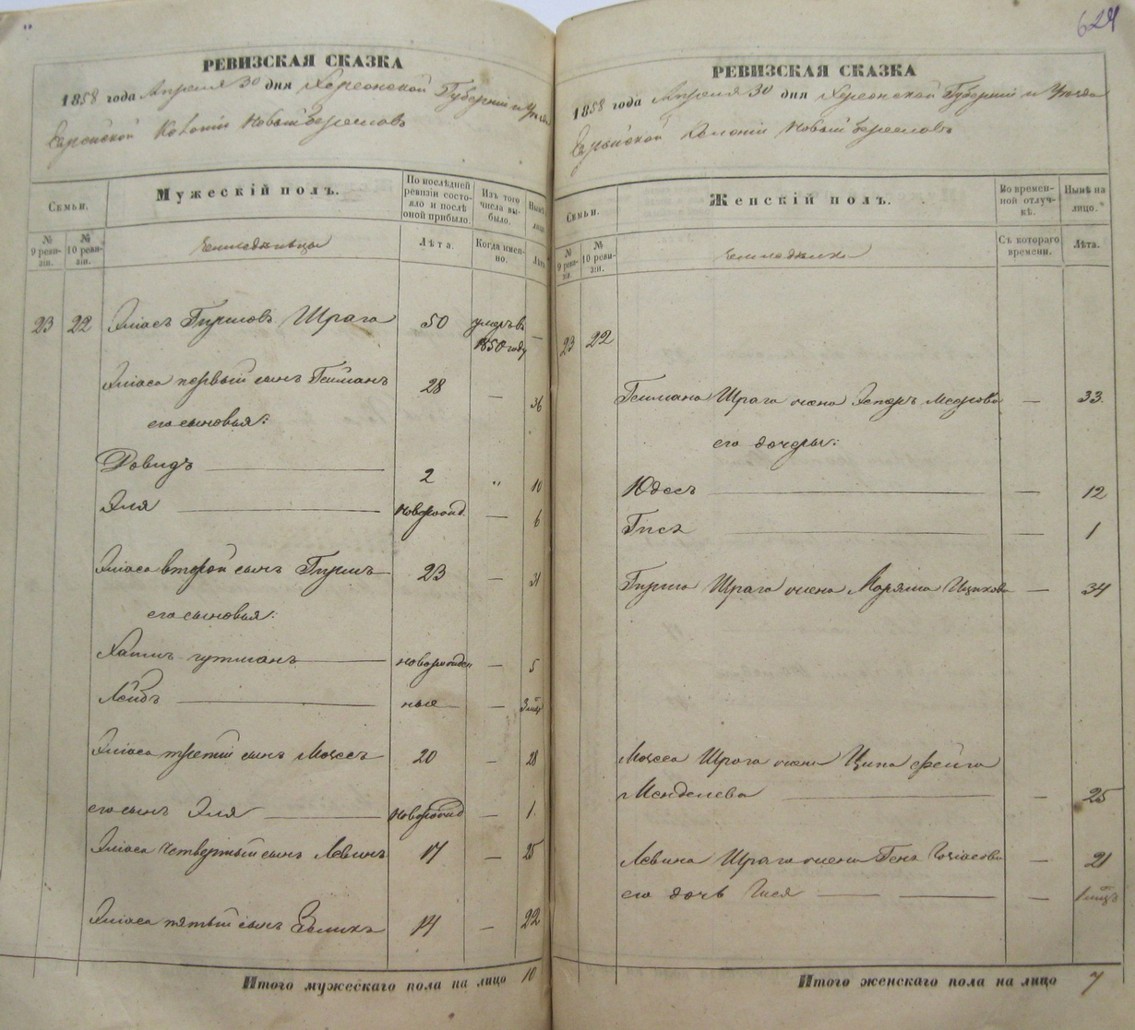 РЕВИЗСКАЯ СКАЗКА
1858 года Апреля 30 дня Херсонской Губернiи и Уезда
Еврейской Колонiи Новый Береславъ
Семьи.
Мужескiй полъ.
По последней ревизiи состояло и после оной прибыло.
Изъ того числа выбыло.
Ныне на лицо.
№ 9 ревизiи.
№ 10 ревизiи.
Земледельцы
Лѣта.
Когда именно.
Лѣта
23 22 Элiасъ Гиршовъ Шрага 50 умеръ въ 1850 году —
Элiаса первый сынъ Гейманъ 28 — 36
его сыновья:
Довидъ 2 " 10
Эля новорожд. — 6
Элiаса второй сынъ Гиршъ 23 — 31
его сыновья:
Хаимъ гутманъ новорожден — 5
Лейбъ ные —
Элiаса третiй сынъ Мовсесъ 20 — 28
его сынъ Эля новорожд — 1
Элiаса четвертый сынъ Левинъ 17 — 25
Элiаса пятый сынъ Зеликъ 14 — 22
Итого мужескаго пола на лицо 10
624
РЕВИЗСКАЯ СКАЗКА
1858 года Апреля 30 дня Херсонской Губернiи и Уезда
Еврейской Колонiи Новый Береславъ
Семьи.
Женскiй полъ.
Во временной отлучкѣ.
Нынѣ на лицо.
№ 9 ревизiи.
№ 10 ревизiи.
Съ котораго времени.
Лѣта.
23 22
Геймана Шрага жена Эстеръ — 33
его дочеры:
Юдесъ — 12
Гися — 1
Гирша Шрага жена Марьяма Ицикова — 34
Мовсеса Шрага жена Ципа фейга
Менделева — 25
Левина Шрага жена Геня — 21
его дочь Гися —
Итого женскаго пола на лицо 7